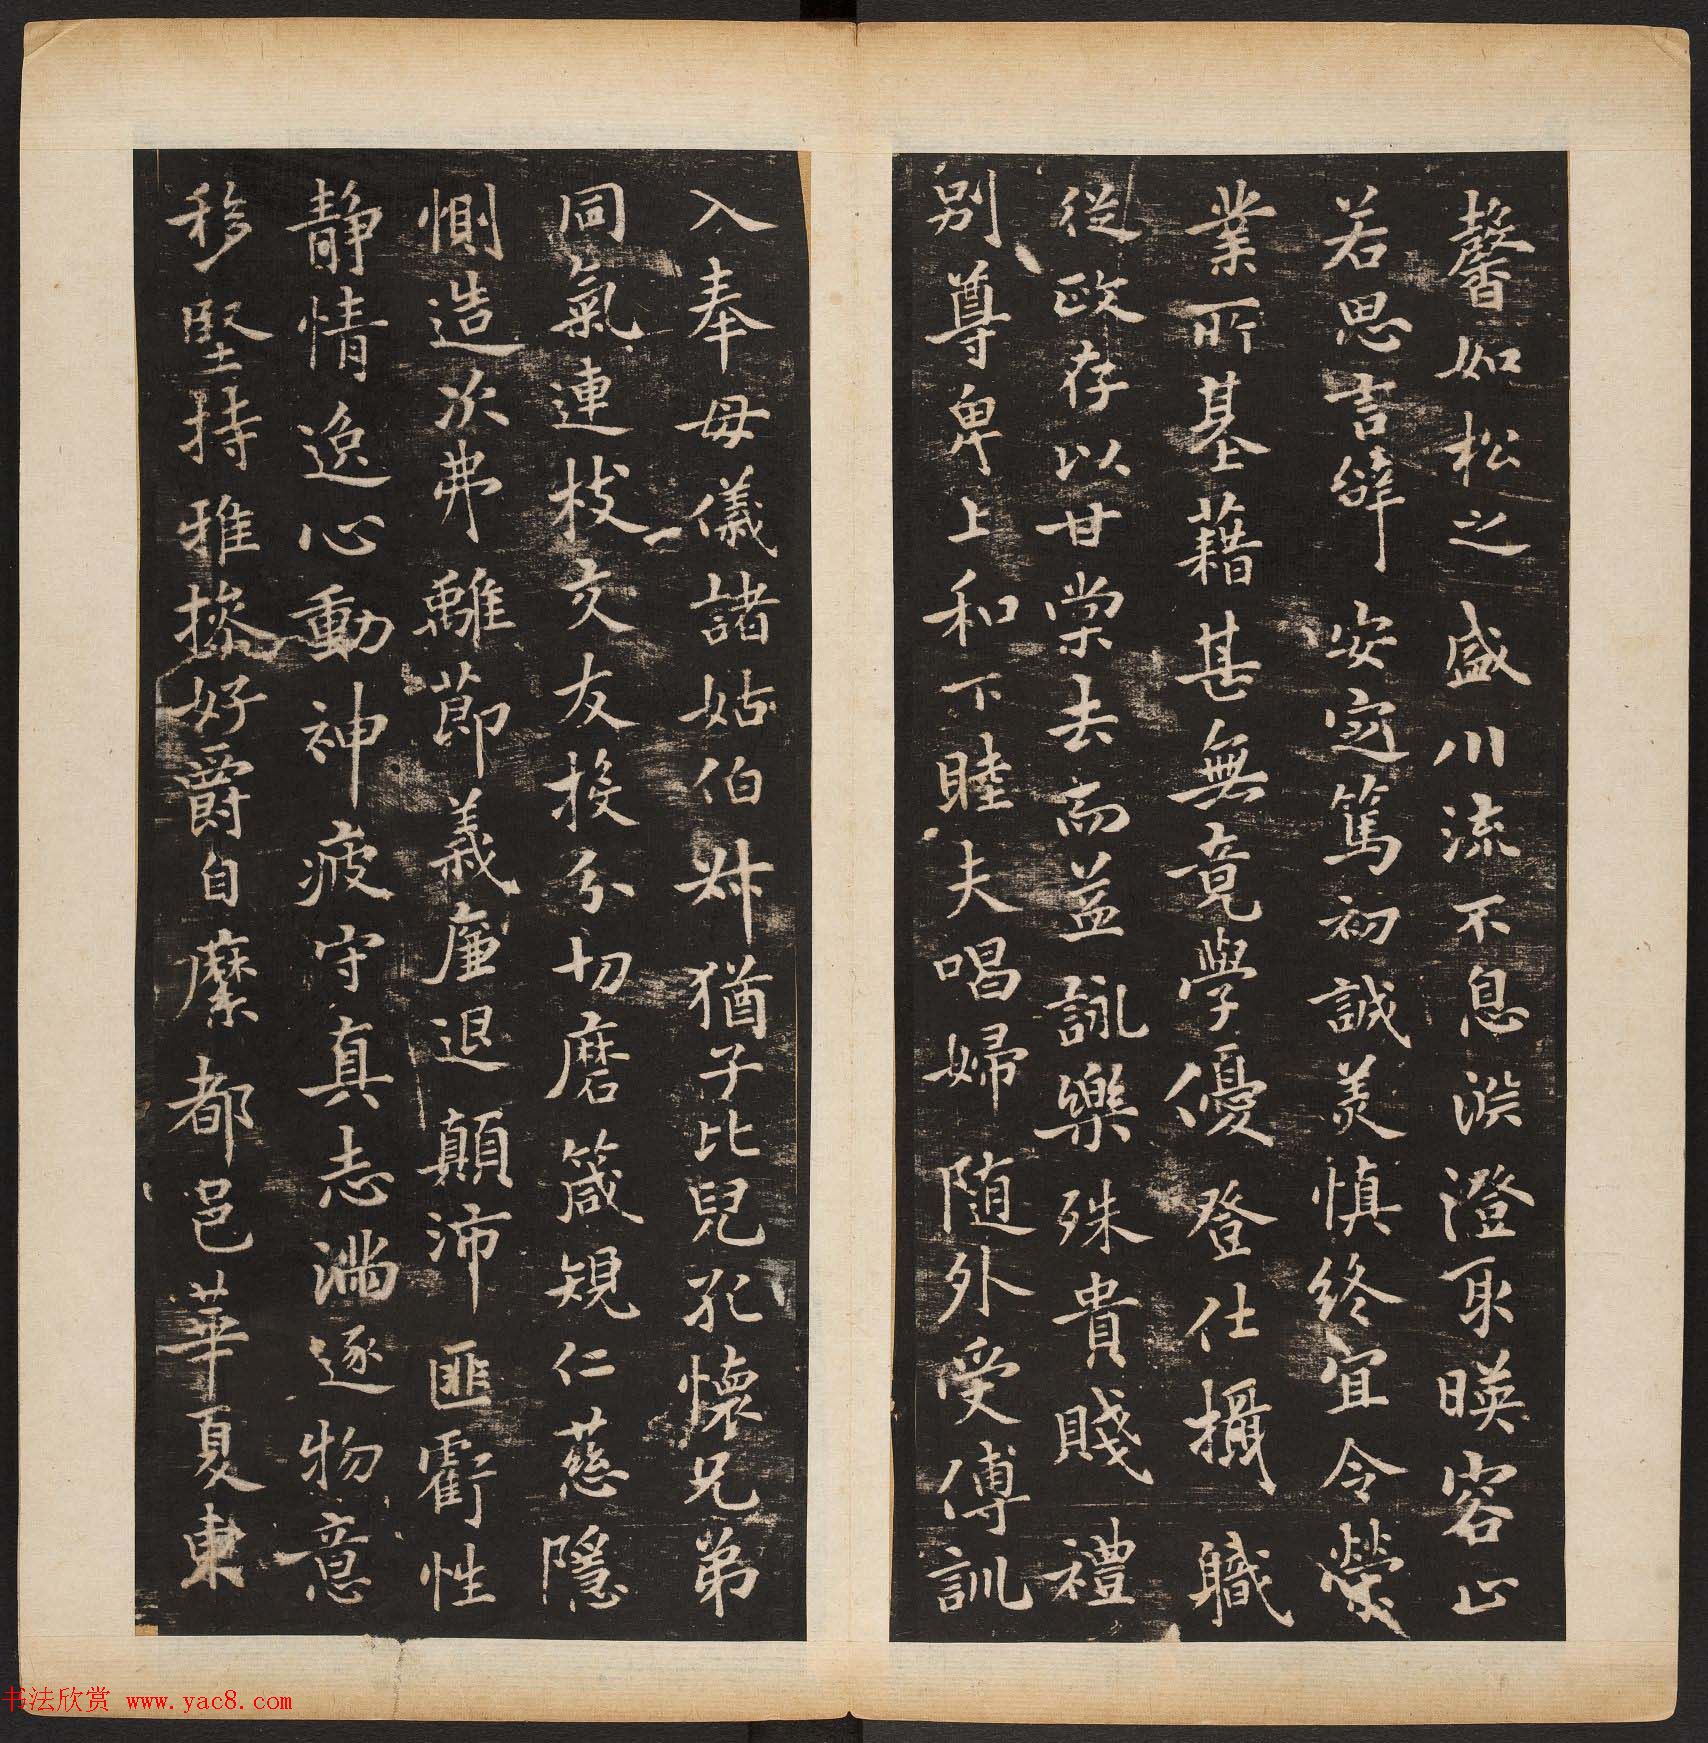 馨如松之盛川流不息淵澄取暎容止
若思言辭安定篤初誠美慎終宜令榮
業所基藉甚無竟學優登仕攝職
從政存以甘棠去而益詠樂殊貴賤禮
別尊卑上和下睦夫唱婦随外受傅訓
入奉母儀諸姑伯叔猶子比兒孔懷兄弟
同氣連枝交友投分切磨箴規仁慈隱
惻造次弗離節義廉退顛沛匪虧性
静情逸心動神疲守真志滿逐物意
移堅持雅操好爵自縻都邑華夏東
书法欣赏 www.yac8.com